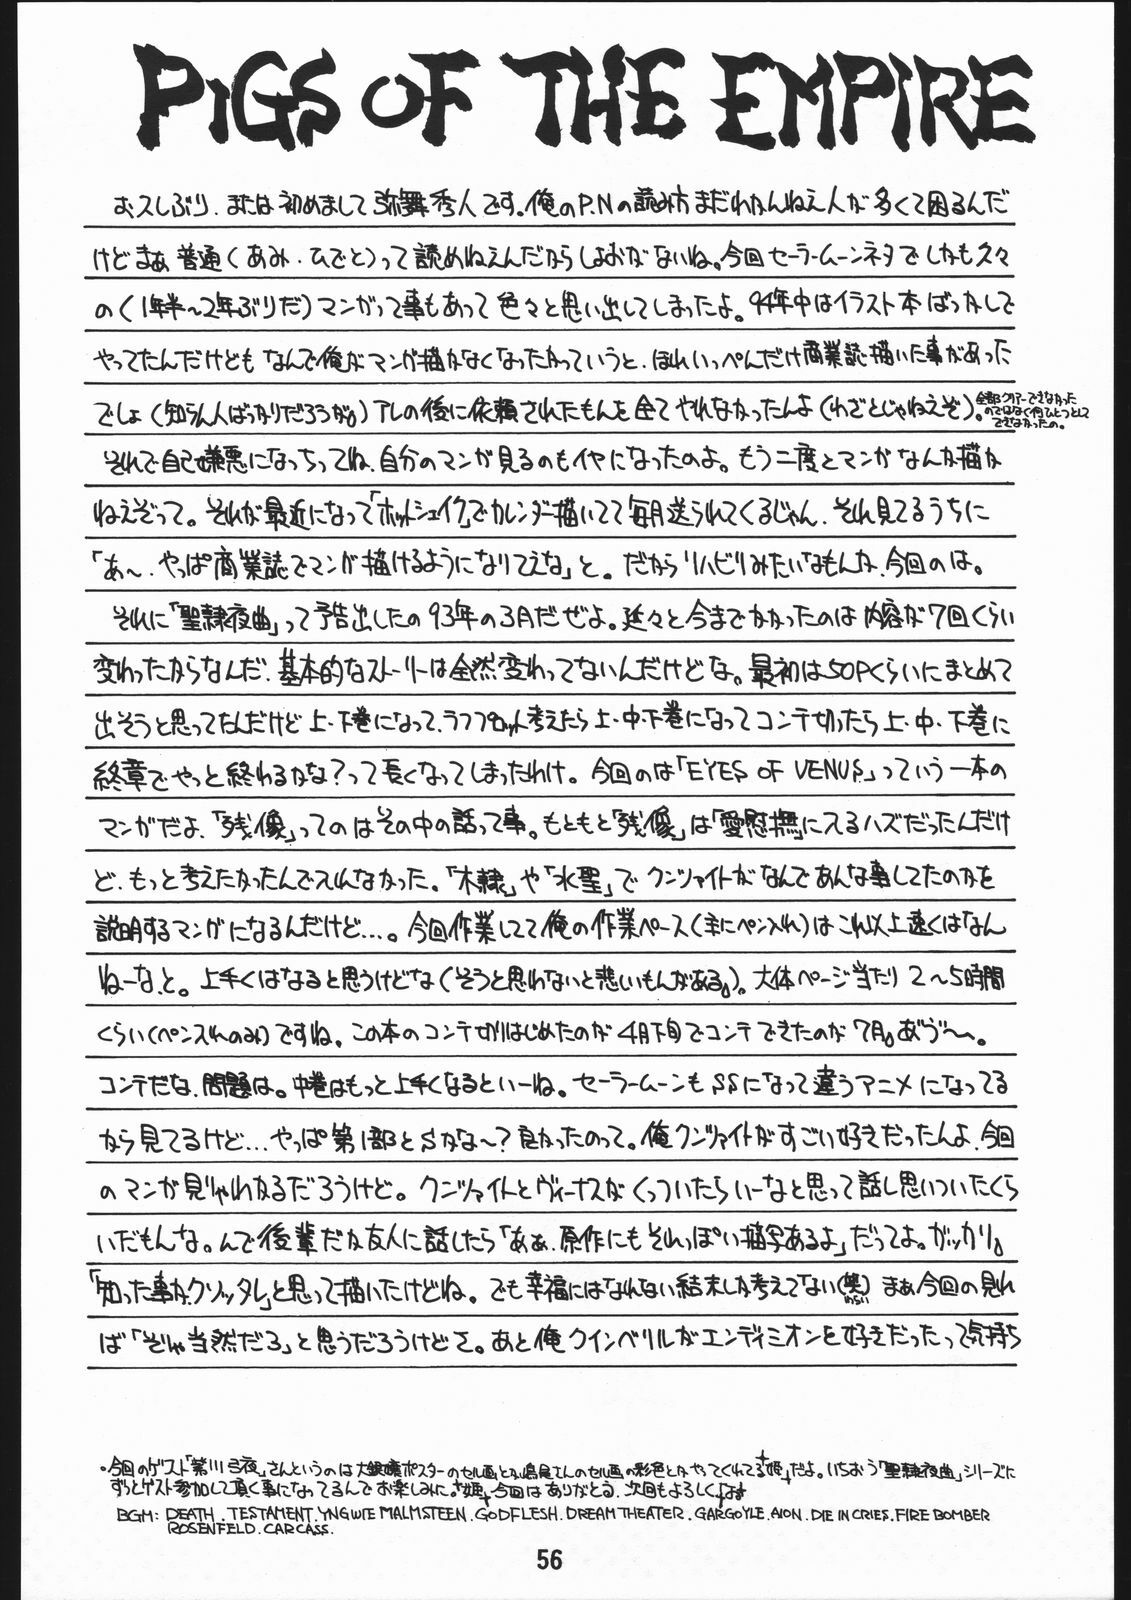 PIGS OF THE EMPIRE
おスしぶり、または初めまして弥舞秀人です。俺のP.Nの読み方まだわかんねえ人が多くて困るんだ
けどまぁ普通(あみ・ひでと)って読めねえんだからしょおがないね。今回セーラームーンネタでしかも久々
の(1年半〜2年ぶりだ)マンガって事もあって色々と思い出してしまったよ。94年中はイラスト本ばっかしで
やってたんだけどもなんで俺がマンガ描かなくなったかっていうと、ほれいっぺんだけ商業誌描いた事があった
でしょ(知らん人ばっかりだろうがな)アレの後に依頼されたもんを全てやれなかったんよ(わざとじゃねえぞ)。
全部クリアーできなかった
のではなく何ひとつとして
できなかったの。
それで自己嫌悪になっちってね、自分のマンガ見るのもイヤになったのよ。もう二度とマンガなんか描か
ねえぞって。それが最近になって「ホットシェイク」でカレンダー描いてて毎月送られてくるじゃん、それ見てるうちに
「あ〜、やっぱ商業誌でマンガ描けるようになりてえな」と。だからリハビリみたいなもんか、今回のは。
それに「聖隷夜曲」って予告出したの93年の3月だぜよ。延々と今までかかったのは内容が7回くらい
変わったからなんだ、基本的なストーリーは全然変わってないんだけどな。最初は50Pくらいにまとめて
出そうと思ってたんだけど上・下巻になって、ラフプロット考えたら上・中・下巻になってコンテ切ったら上・中・下巻に
終章でやっと終わるかな?って長くなってしまったわけ。今回のは「EYES OF VENUS」っていう一本の
マンガだよ、「残像」ってのはその中の話って事。もともと「残像」は「愛慰撫」に入るハズだったんだけ
ど、もっと考えたかったんで入れなかった。「木隷」や「水聖」でクンツァイトがなんであんな事してたのかを
説明するマンガになるんだけど…。今回作業してて俺の作業ペース(主にペン入れ)はこれ以上速くはなん
ねーな、と。上手くはなると思うけどな(そうと思わないと悲しいもんがある)。大体ページ当たり2〜5時間
くらい(ペン入れのみ)ですね。この本のコンテ切りはじめたのが4月下旬でコンテできたのが7月。あ゛う゛〜。
コンテだな、問題は。中巻はもっと上手くなるといーね。セーラームーンもSSになって違うアニメになってる
から見てるけど…やっぱ第1部とSかな〜?良かったのって。俺クンツァイトがすごい好きだったんよ、今回
のマンガ見りゃわかるだろうけど。クンツァイトとヴィーナスがくっついたらいーなと思って話し思いついたくら
いだもんな。んで後輩だか友人に話したら「あぁ、原作にもそれっぽい描写あるよ」だってよ。ガッカリ。
「知った事か、クソッタレ」と思って描いたけどね。でも幸福にはなれない結末しか考えてない(笑)まぁ今回の見れ
ば「そりゃ当然だろ」と思うだろうけどさ。あと俺クインベリルがエンディミオンを好きだったって気持ち
・今回のゲスト「紫川弓夜」さんというのは大銀嬢ポスターのセル画とか島尾さんのセル画の彩色とかやってくれてる"姫"だよ。いちおう「聖隷夜曲」シリーズに
ずっとゲスト参加して頂く事になってるんでお楽しみに。"姫"今回はありがとう、次回もよろしく
BGM: DEATH. TESTAMENT. YNGWIE MALMSTEEN. GODFLESH. DREAM THEATER. GARGOYLE. AION. DIE IN CRIES. FIRE BOMBER
ROSENFELD. CARCASS.
56